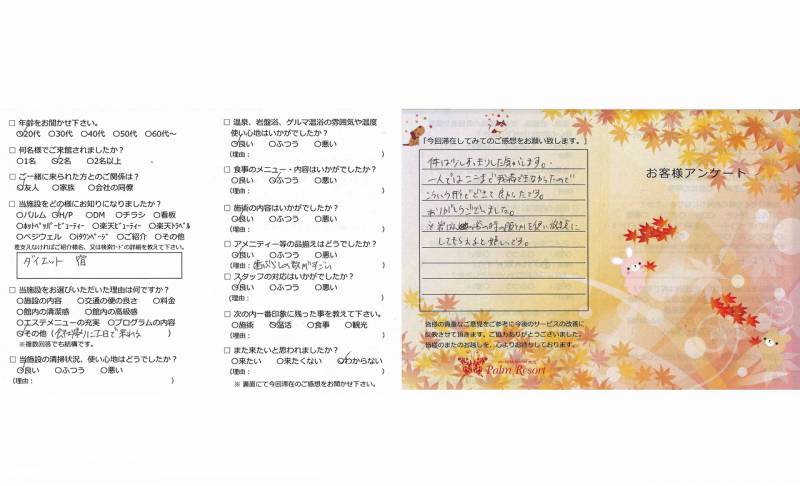 □ 年齢をお聞かせ下さい。
○20代 ○30代 ○40代 ○50代 ○60代～
□ 何名様でご来館されましたか？
○1名 ○2名 ○2名以上
□ ご一緒に来られた方とのご関係は？
○友人 ○家族 ○会社の同僚
□ 当施設をどの様にお知りになりましたか？
○パルム ○H/P ○DM ○チラシ ○看板
○ホットペッパービューティー ○楽天ビューティー ○楽天トラベル
○ベジウェル ○iタウンページ ○ご紹介 ○その他
差支えなければご紹介様名、又は検索ワードの詳細を教えて下さい。
ダイエット 宿
□ 当施設をお選びいただいた理由は何ですか？
○施設の内容 ○交通の便の良さ ○料金
○館内の清潔感 ○館内の高級感
○エステメニューの充実 ○プログラムの内容
○その他 ( )
※複数回答でも結構です。
□ 当施設の清掃状況、使い心地はどうでしたか？
○良い ○ふつう ○悪い
(理由： )
□ 温泉、岩盤浴、ゲルマ温浴の雰囲気や温度
使い心地はいかがでしたか？
○良い ○ふつう ○悪い
(理由： )
□ 食事のメニュー・内容はいかがでしたか？
○良い ○ふつう ○悪い
(理由： )
□ 施術の内容はいかがでしたか？
○良い ○ふつう ○悪い
(理由： )
□ アメニティー等の品揃えはどうでしたか？
○良い ○ふつう ○悪い
(理由：歯ブラシの数がすごい )
□ スタッフの対応はいかがでしたか？
○良い ○ふつう ○悪い
(理由： )
□ 次の内一番印象に残った事を教えて下さい。
○施術 ○温活 ○食事 ○観光
(理由： )
□ また来たいと思われましたか？
○来たい ○来たくない ○わからない
(理由： )
※ 裏面にて今回滞在のご感想をお聞かせ下さい。
「今回滞在してみてのご感想をお願い致します。」
体は少しすっきりした気がします。
一人ではここまで我慢できなかったので
こういう形でできて良かったです。
ありがとうございました。
してもらえると嬉しいです。
皆様の貴重なご意見をご参考に今後のサービスの改善に
反映させて頂きます。ご協力ありがとうございました。
皆様のまたのお越しを、心よりお待ちしております。
Palm Resort
お客様アンケート